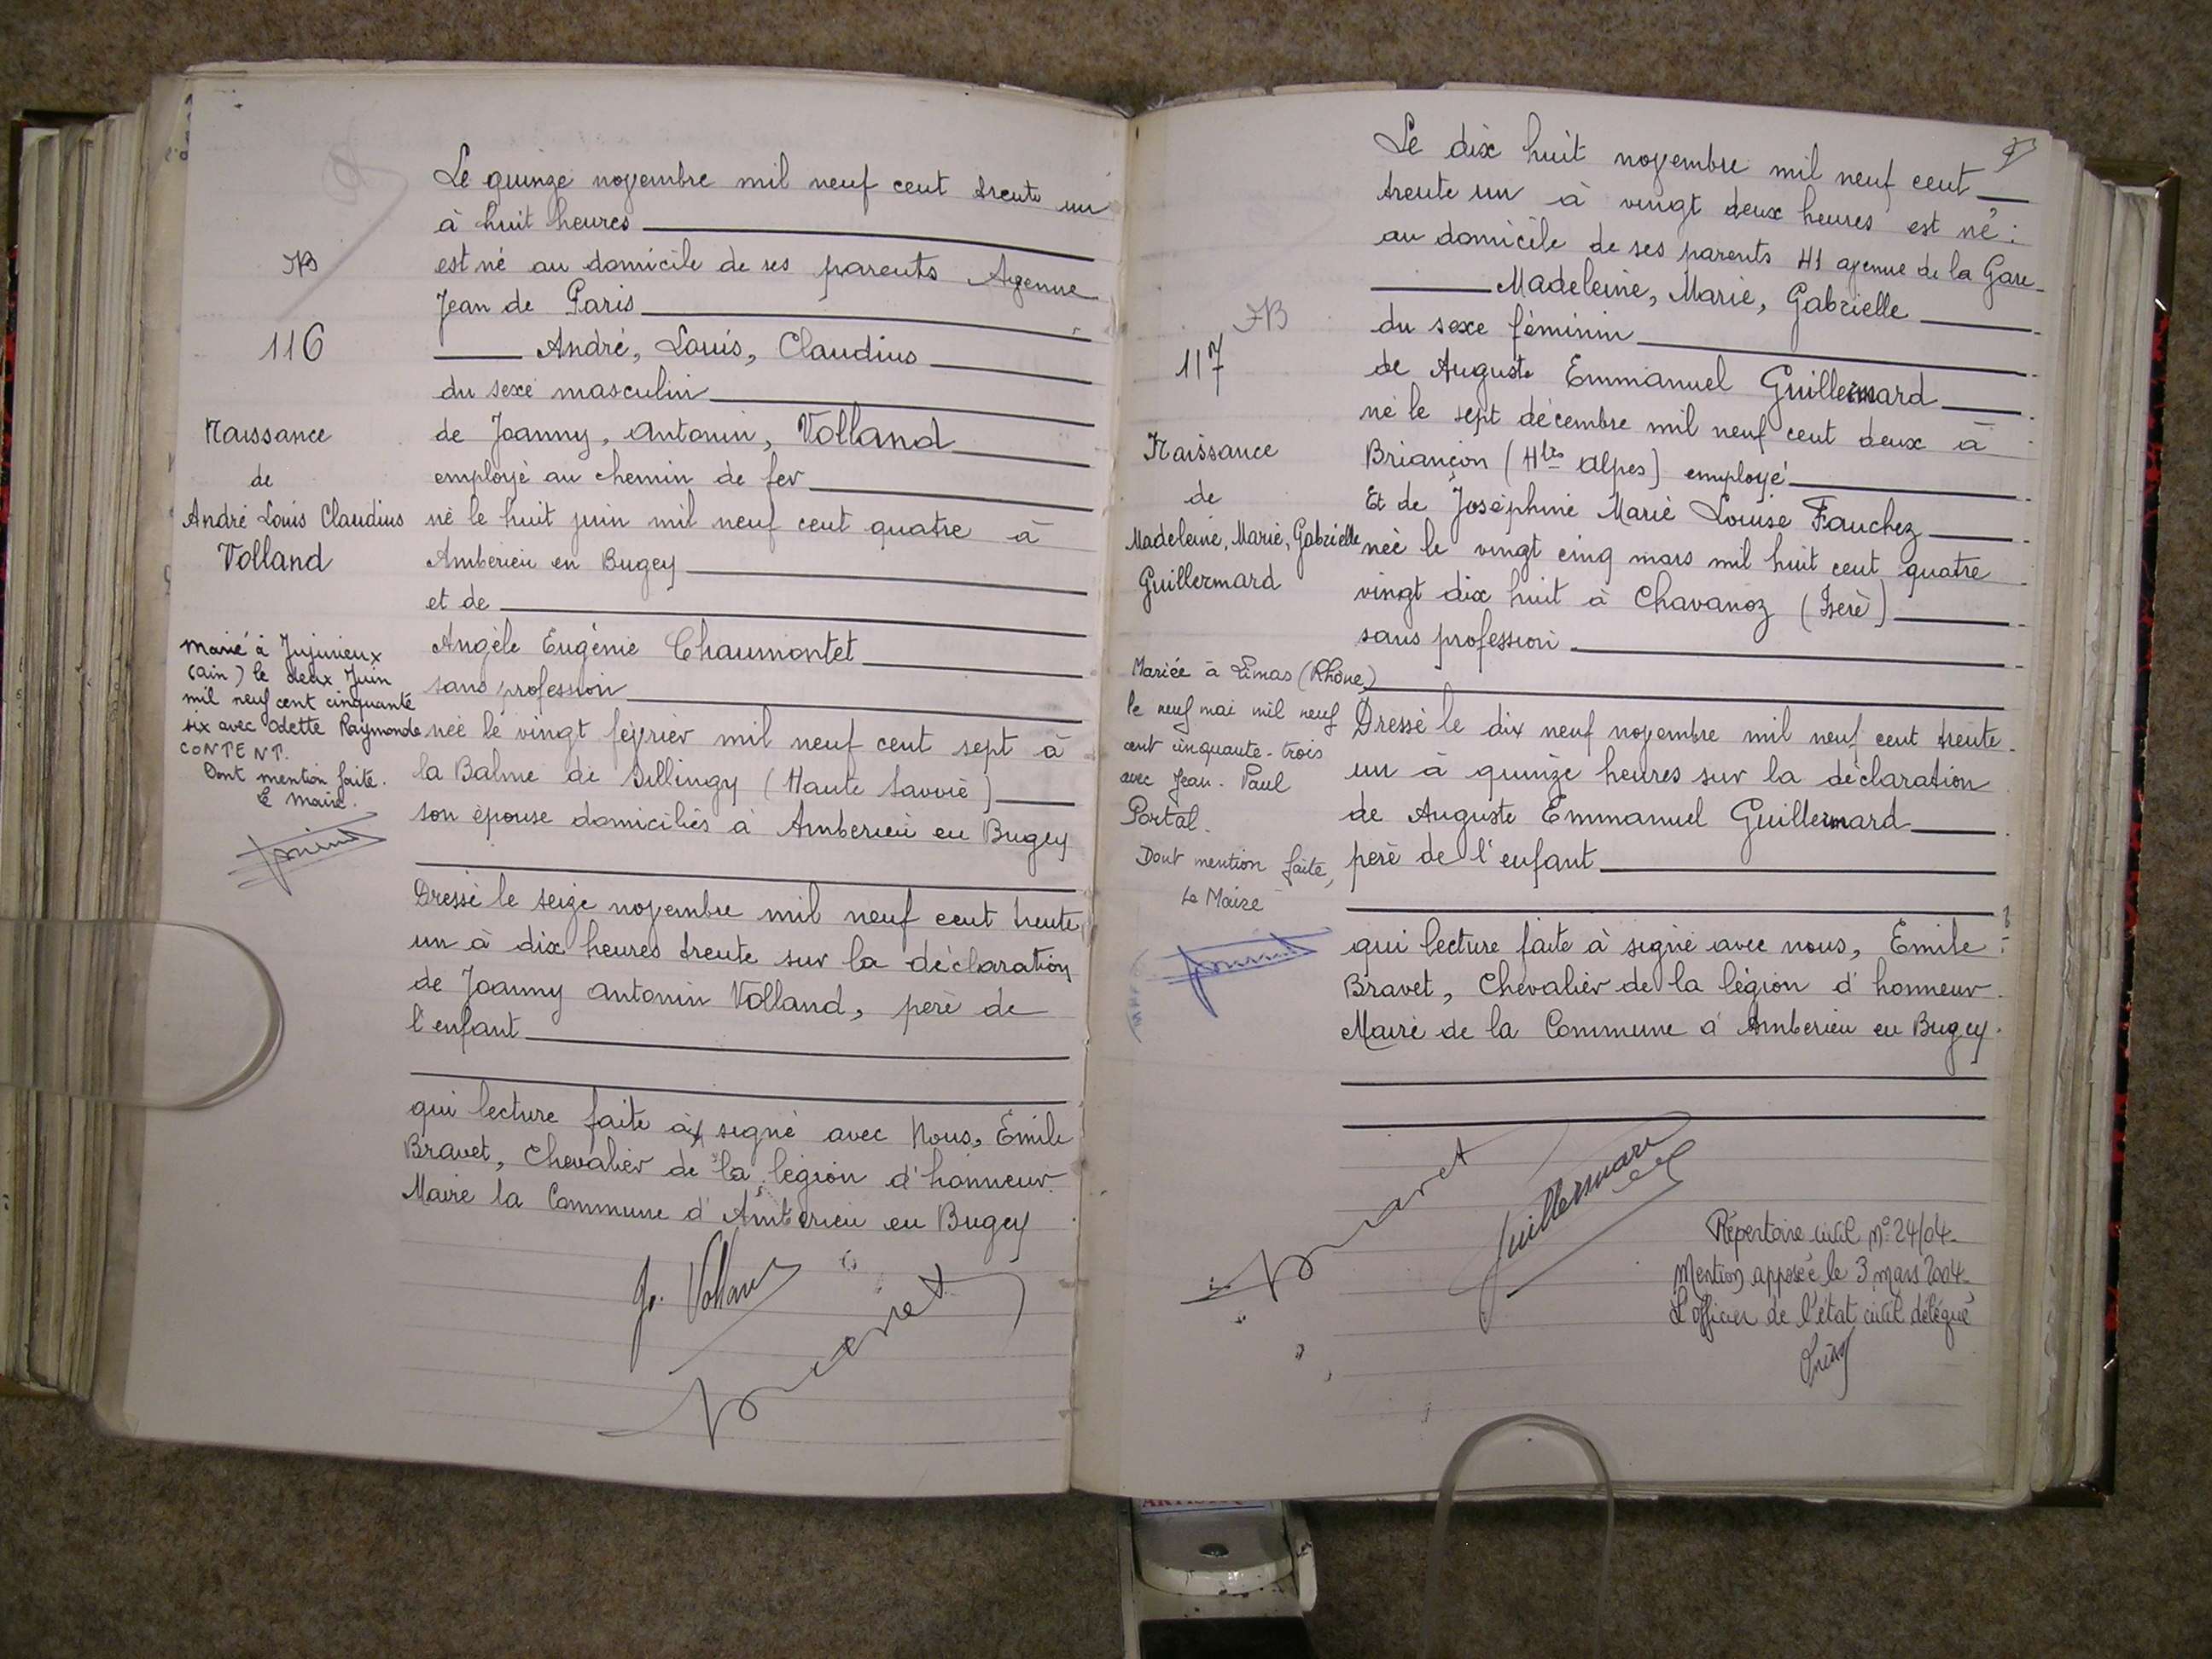 NB
116
Naissance
de
André Louis Claudius
Volland
Marié à Jujurieux
(Ain) le deux Juin
mil neuf cent cinquante
six avec Odette Raymonde
CONTENT.
Dont mention faite.
le maire.
Le quinze novembre mil neuf cent trente un
à huit heures
est né au domicile de ses parents Avenue
Jean de Paris
André, Louis, Claudius
du sexe masculin
de Joanny, Antonin, Volland
employé au chemin de fer
né le huit juin mil neuf cent quatre à
Amberieu en Bugey
et de
Angèle Eugénie Chaumontet
sans profession
née le vingt février mil neuf cent sept à
la Balme de Sillingy (Haute Savoie)
son épouse domiciliés à Amberieu en Bugey
Dressé le seize novembre mil neuf cent trente
un à dix heures trente sur la déclaration
de Joanny Antonin Volland, père de
l'enfant
qui lecture faite à signé avec Nous, Emile
Bravet, Chevalier de la légion d'honneur
Maire la Commune d'Amberieu en Bugey
J. Volland
Bravet
117
Naissance
de
Madeleine, Marie, Gabrielle
Guillermard
Mariée à Limas (Rhône)
le neuf mai mil neuf
cent cinquante-trois
avec Jean-Paul
Portal.
Dont mention faite,
Le Maire
Le dix huit novembre mil neuf cent
trente un à vingt deux heures est né:
au domicile de ses parents 41 avenue de la Gare
Madeleine, Marie, Gabrielle
du sexe féminin
de Auguste Emmanuel Guillermard
né le sept décembre mil neuf cent deux à
Briançon (Htes Alpes) employé
Et de Joséphine Marie Louise Fauchez
née le vingt cinq mars mil huit cent quatre
vingt dix huit à Chavanoz (Isère)
sans profession
Dressé le dix neuf novembre mil neuf cent trente
un à quinze heures sur la déclaration
de Auguste Emmanuel Guillermard
père de l'enfant
qui lecture faite à signé avec nous, Emile
Bravet, Chevalier de la légion d'honneur
Maire de la Commune d'Amberieu en Bugey.
Bravet
Guillermard
Répertoire civil n° 24/04
Mention apposée le 3 mars 2004
L'officier de l'état civil délégué